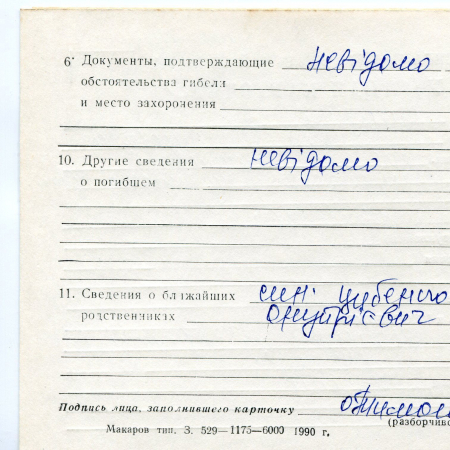 6· Документы, подтверждающие невідомо
обстоятельства гибели
и место захоронения
10. Другие сведения невідомо
о погибшем
11. Сведения о ближайших син: Цубенко
родственниках Онупрієвич
Подпись лица, заполнившего карточку
(разборчиво
Макаров тип. З. 529—1175—6000 1990 г.